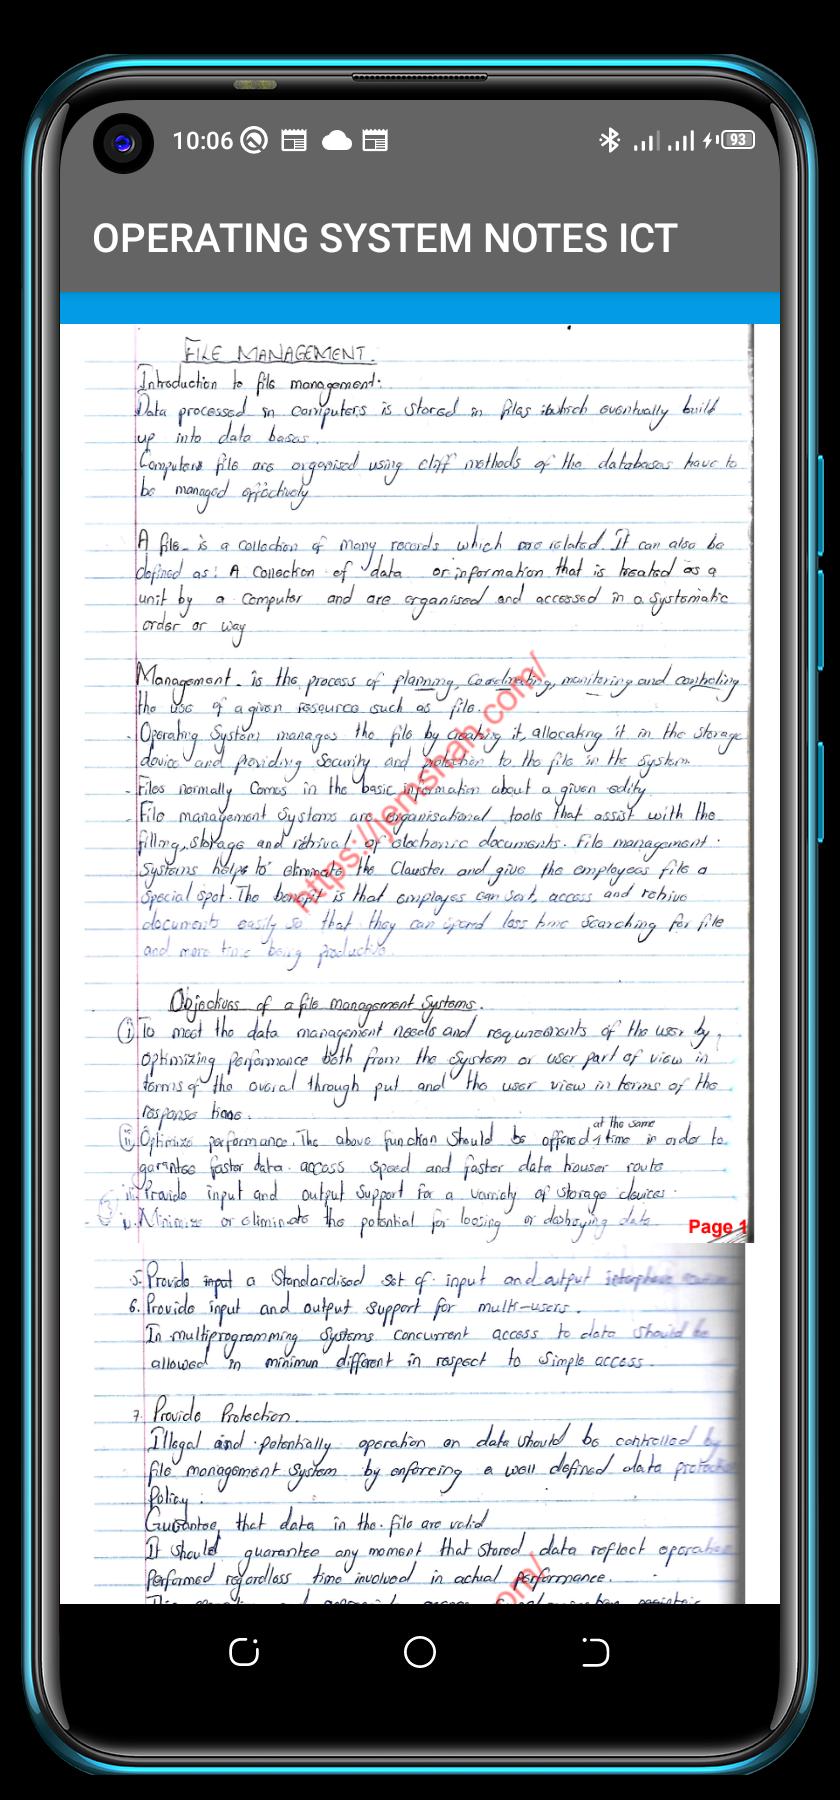 10:06
93
OPERATING SYSTEM NOTES ICT
FILE MANAGEMENT.
Introduction to file management:
Data processed in computers is stored in files which eventually built
up into data bases.
Computers file are organised using diff methods of the databases have to
be managed effectively
A file - is a collection of many records which are related. It can also be
defined as: A Collection of data or information that is treated as a
unit by a computer and are organised and accessed in a systematic
order or way
Management - is the process of planning, Coordinating, monitering and controling
the use of a given resource such as file.
- Operating System manages the file by creating it, allocating it in the storage
device and providing Security and protection to the file in the system
- Files normally Comes in the basic information about a given edity
- File management Systems are organisational tools that assist with the
filling, storage and retrival of electronic documents. File management
Systems helps to eliminate the Clauster and give the employees file a
special spot. The benefit is that employes can sort, access and retrive
documents easily so that they can spend less time searching for file
and more time being productive.
https://jemshah.com/
Objectives of a file management Systems.
(i) To meet the data management needs and requirements of the user by,
Optimizing performance both from the system or user part of view in
terms of the overal through put and the user view in terms of the
response time.
(ii) Optimize performance. The above function should be offered at the same time in order to
garantee faster data access speed and faster data route
iii. Provide input and output support for a variety of storage devices.
iv. Minimize or eliminate the potential for loosing or destroying data
Page 1
5. Provide input a Standardised set of input and output
6. Provide input and output support for multi-users.
In multiprogramming systems concurrent access to data should be
allowed in minimun different in respect to simple access.
7. Provide Protection.
Illegal and potentially operation on data should be controlled by
file management system by enforcing a well defined data protection
Policy.
Guarantee that data in the file are valid
It should guarantee any moment that stored data reflect operation
Performed regardless time involved in actual performance.
om/